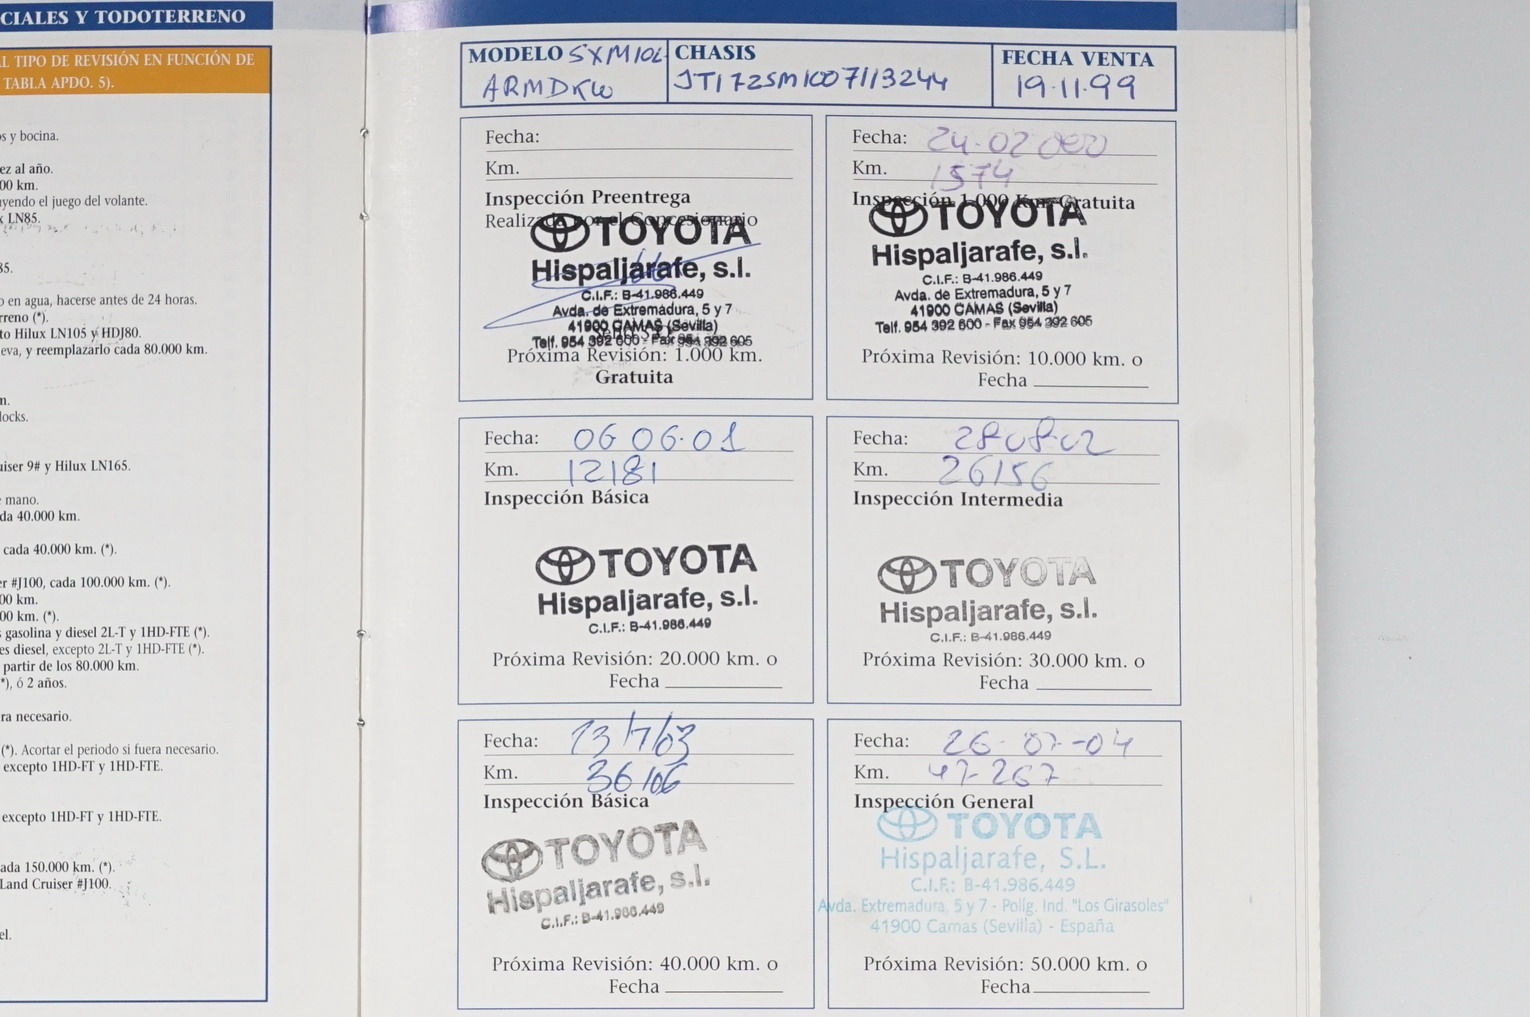 CIALES Y TODOTERRENO
AL TIPO DE REVISIÓN EN FUNCIÓN DE
TABLA APDO. 5).
s y bocina.
ez al año.
00 km.
yendo el juego del volante.
x LN85.
85.
o en agua, hacerse antes de 24 horas.
rreno (*).
to Hilux LN105 y HDJ80.
eva, y reemplazarlo cada 80.000 km.
n.
locks.
uiser 9# y Hilux LN165.
e mano.
da 40.000 km.
cada 40.000 km. (*).
er #J100, cada 100.000 km. (*).
00 km.
00 km. (*).
s gasolina y diesel 2L-T y 1HD-FTE (*).
es diesel, excepto 2L-T y 1HD-FTE (*).
partir de los 80.000 km.
*), ó 2 años.
ra necesario.
(*). Acortar el periodo si fuera necesario.
excepto 1HD-FT y 1HD-FTE.
excepto 1HD-FT y 1HD-FTE.
ada 150.000 km. (*).
Land Cruiser #J100.
el.
MODELO SXM10L
ARMDKW
CHASIS
JT172SM1007113244
FECHA VENTA
19.11.99
Fecha:
Km.
Inspección Preentrega
Realizada por el Concesionario
TOYOTA
Hispaljarafe, s.l.
C.I.F.: B-41.986.449
Avda. de Extremadura, 5 y 7
41900 CAMAS (Sevilla)
Telf. 954 392 600 - Fax 954 392 605
Próxima Revisión: 1.000 km.
Gratuita
Fecha: 24-02 000
Km. 1574
Inspección 1.000 Km. Gratuita
TOYOTA
Hispaljarafe, s.l.
C.I.F.: B-41.986.449
Avda. de Extremadura, 5 y 7
41900 CAMAS (Sevilla)
Telf. 954 392 600 - Fax 954 392 605
Próxima Revisión: 10.000 km. o
Fecha
Fecha: 06 06.01
Km. 12181
Inspección Básica
TOYOTA
Hispaljarafe, s.l.
C.I.F.: B-41.986.449
Próxima Revisión: 20.000 km. o
Fecha
Fecha: 28-08-02
Km. 26156
Inspección Intermedia
TOYOTA
Hispaljarafe, s.l.
C.I.F.: B-41.986.449
Próxima Revisión: 30.000 km. o
Fecha
Fecha: 13/7/03
Km. 36106
Inspección Básica
TOYOTA
Hispaljarafe, s.l.
C.I.F.: B-41.986.449
Próxima Revisión: 40.000 km. o
Fecha
Fecha: 26-07-04
Km. 47-267
Inspección General
TOYOTA
Hispaljarafe, S.L.
C.I.F.: B-41.986.449
Avda. Extremadura, 5 y 7 - Políg. Ind. "Los Girasoles"
41900 Camas (Sevilla) - España
Próxima Revisión: 50.000 km. o
Fecha